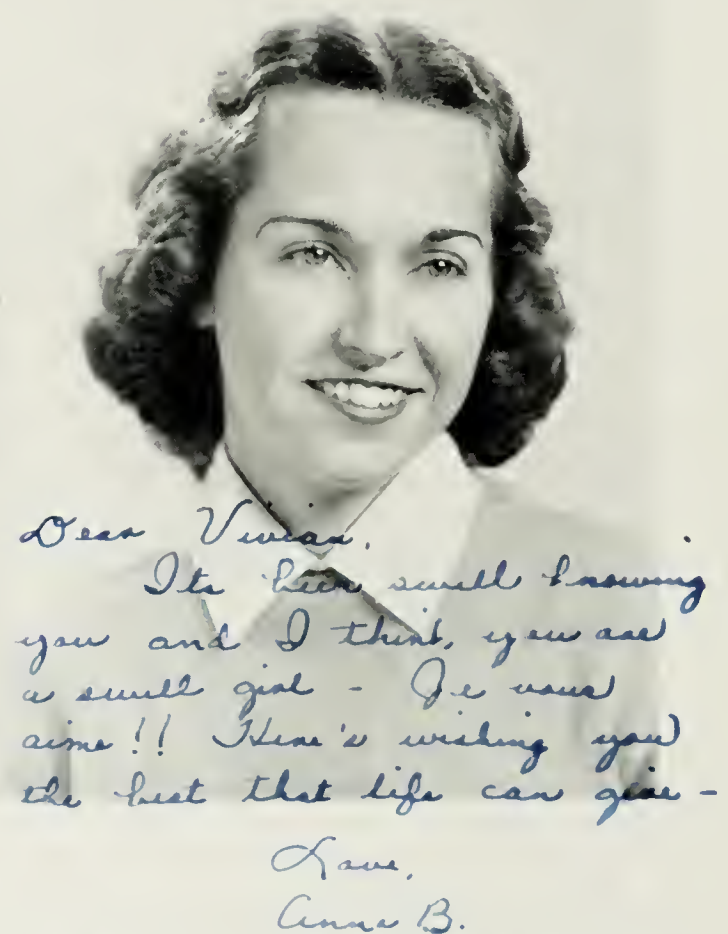 Dear Vivian,
Its been swell knowing
you and I think you are
a swell girl - Je vous
aime!! Here's wishing you
the best that life can give -
Love,
Anna B.